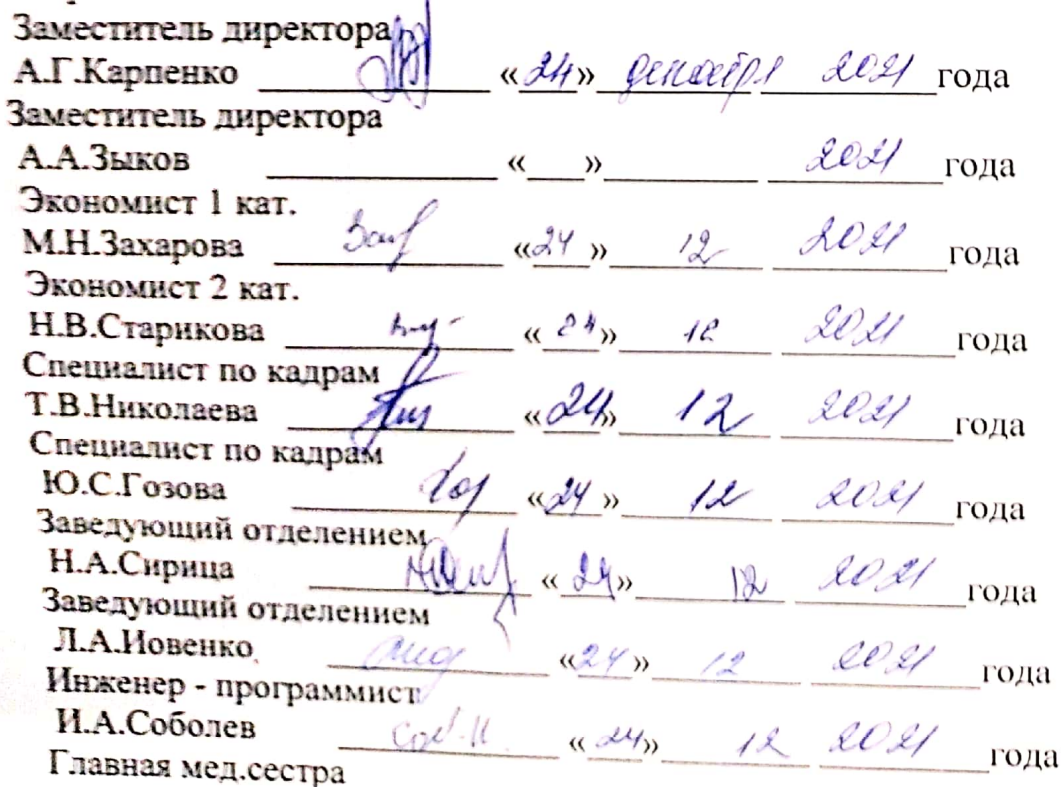 Заместитель директора
А.Г.Карпенко «24» декабря 2021 года
Заместитель директора
А.А.Зыков «___» 2021 года
Экономист 1 кат.
М.Н.Захарова Зах «24» 12 2021 года
Экономист 2 кат.
Н.В.Старикова «24» 12 2021 года
Специалист по кадрам
Т.В.Николаева «24» 12 2021 года
Специалист по кадрам
Ю.С.Гозова «24» 12 2021 года
Заведующий отделением
Н.А.Сирица «24» 12 2021 года
Заведующий отделением
Л.А.Иовенко «24» 12 2021 года
Инженер - программист
И.А.Соболев «24» 12 2021 года
Главная мед.сестра